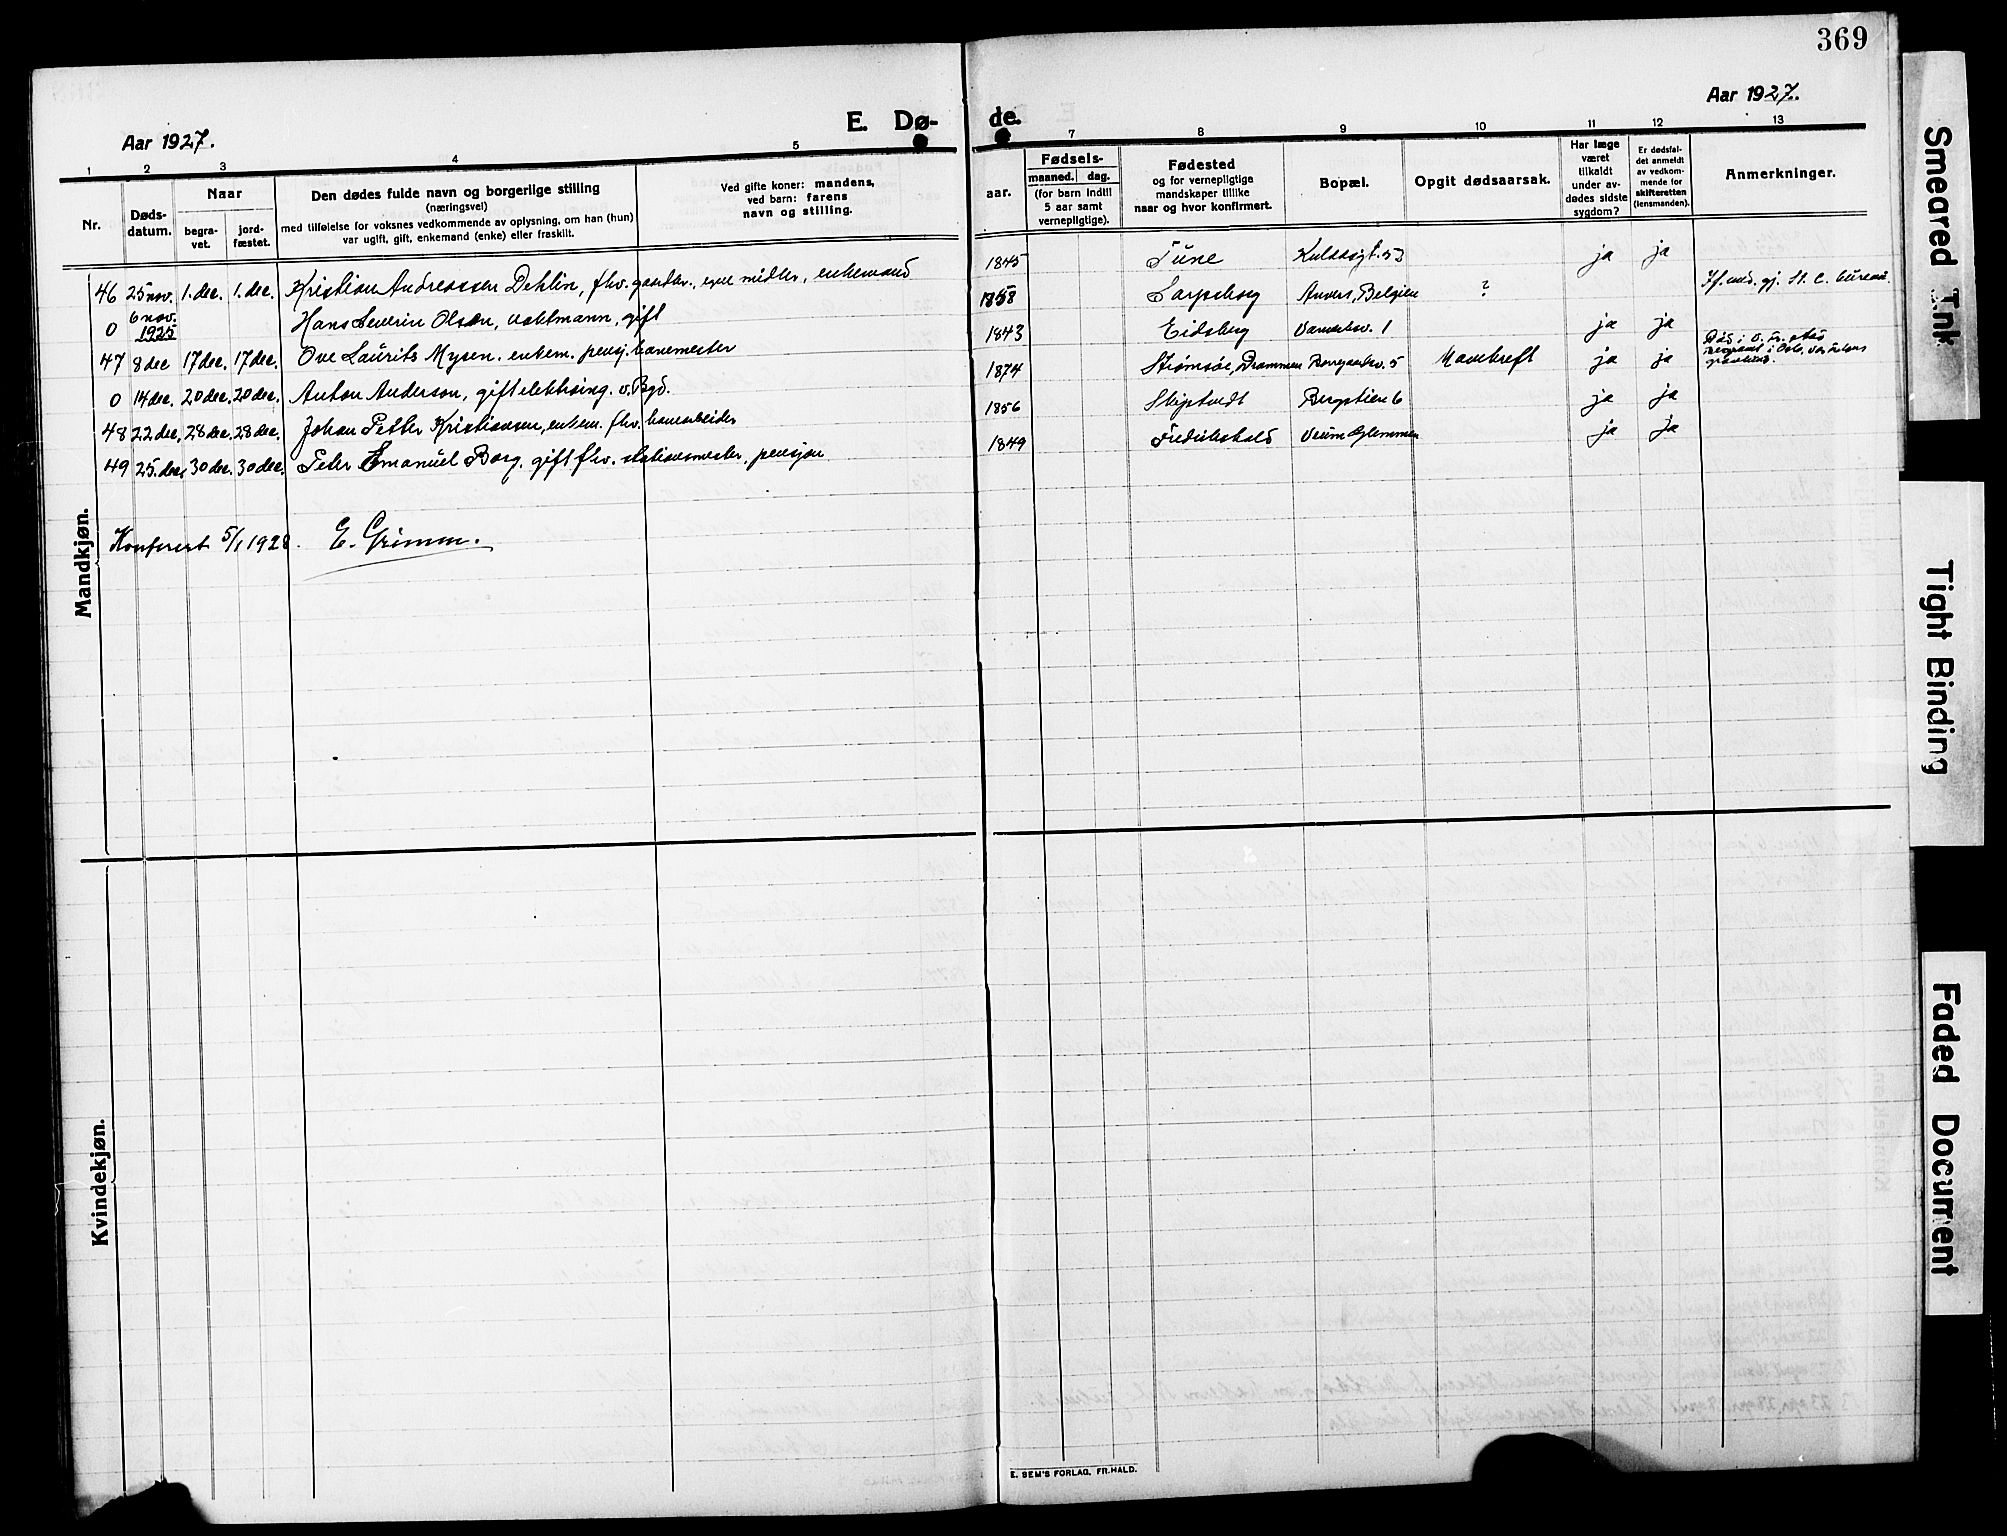 369
Aar 1927.
E. Dø-
de.
Aar 1927.
1 2 3 4 5 7 8 9 10 11 12 13
Nr.
Døds-
datum.
Naar
begra-
vet.
jord-
fæstet.
Den dødes fulde navn og borgerlige stilling
(næringsvei)
med tilføielse for voksnes vedkommende av oplysning, om han (hun)
var ugift, gift, enkemand (enke) eller fraskilt.
Ved gifte koner: mandens,
ved barn: farens
navn og stilling.
aar.
Fødsels-
maaned. dag.
(for barn indtil
5 aar samt
vernepligtige).
Fødested
og for vernepligtige
mandskaper tillike
naar og hvor konfirmert.
Bopæl.
Opgit dødsaarsak.
Har læge
været
tilkaldt
under av-
dødes sidste
sygdom?
Er dødsfal-
det anmeldt
av vedkom-
mende for
skifteretten
(lensmanden).
Anmerkninger.
Mandkjøn.
46 25 nov. 1. dec. 1. dec. Kristian Andreassen Dehlin, fhv. gaardbr., egne midler, enkemand 1845 Tune Kulåsgt. 53 ja ja
0 6 nov. 1925 Hans Severin Olsen, gift 1858 Sarpsborg Anvers, Belgien ? gj. St. C. bureau.
47 8 dec 17 dec. 17 dec. Ove Laurits Mysen, enkem. pensj. banemester 1843 Eidsberg 1 ja ja
0 14 dec. 20 dec. 20 dec. Anton Anderson, gift v. Bgd. 1874 Strømsø, Drammen Borgaardsv. 5 Mavekreft ja ja Død i
48 22 dec. 28 dec. 28 dec. Johan Petter Kristiansen, enkem. fhv. banearbeider 1856 Skiptvedt Bergstien 6 ja ja
49 25. dec. 30 dec. 30 dec. Peter Emanuel Borg, gift fhv. stationsmester, pensjon 1849 Fredrikshald Glemmen ja ja
Konferert 5/1 1928. E. Grimm.
Kvindekjøn.
E. SEM'S FORLAG, FR.HALD.
Smeared Ink
Tight Binding
Faded Document